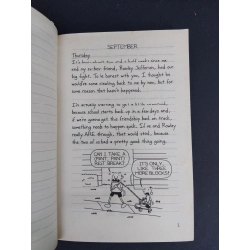 SEPTEMBER
Thursday
It's been about two and a half weeks since me
and my ex-best friend, Rowley Jefferson, had our
big fight. To be honest with you, I thought he
would've come crawling back to me by now, but for
some reason that hasn't happened.
I'm actually starting to get a little concerned,
because school starts back up in a few days and
if we're gonna get this friendship back on track,
something needs to happen quick. If me and Rowley
really ARE through, that would stink, because
the two of us had a pretty good thing going.
CAN I TAKE A
(PANT, PANT)
REST BREAK?
IT'S ONLY
LIKE THREE
MORE BLOCKS!
1